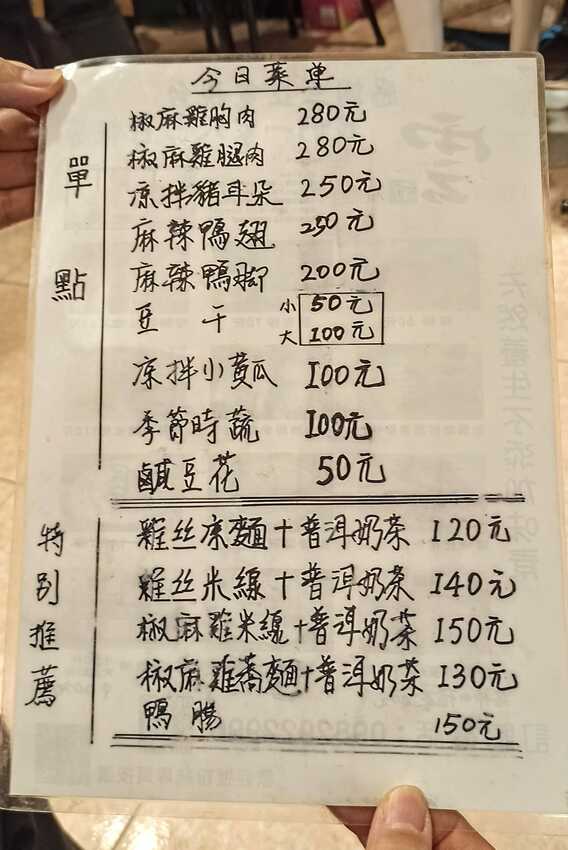 今日菜单
單點
椒麻雞胸肉 280元
椒麻雞腿肉 280元
凉拌豬耳朵 250元
麻辣鴨翅 250元
麻辣鴨脚 200元
豆干 小 50元
大 100元
凉拌小黄瓜 100元
季節時蔬 100元
鹹豆花 50元
特别推薦
雞丝凉麵+普洱奶茶 120元
雞丝米線+普洱奶茶 140元
椒麻雞米線+普洱奶茶 150元
椒麻雞蕎麵+普洱奶茶 130元
鴨腸 150元